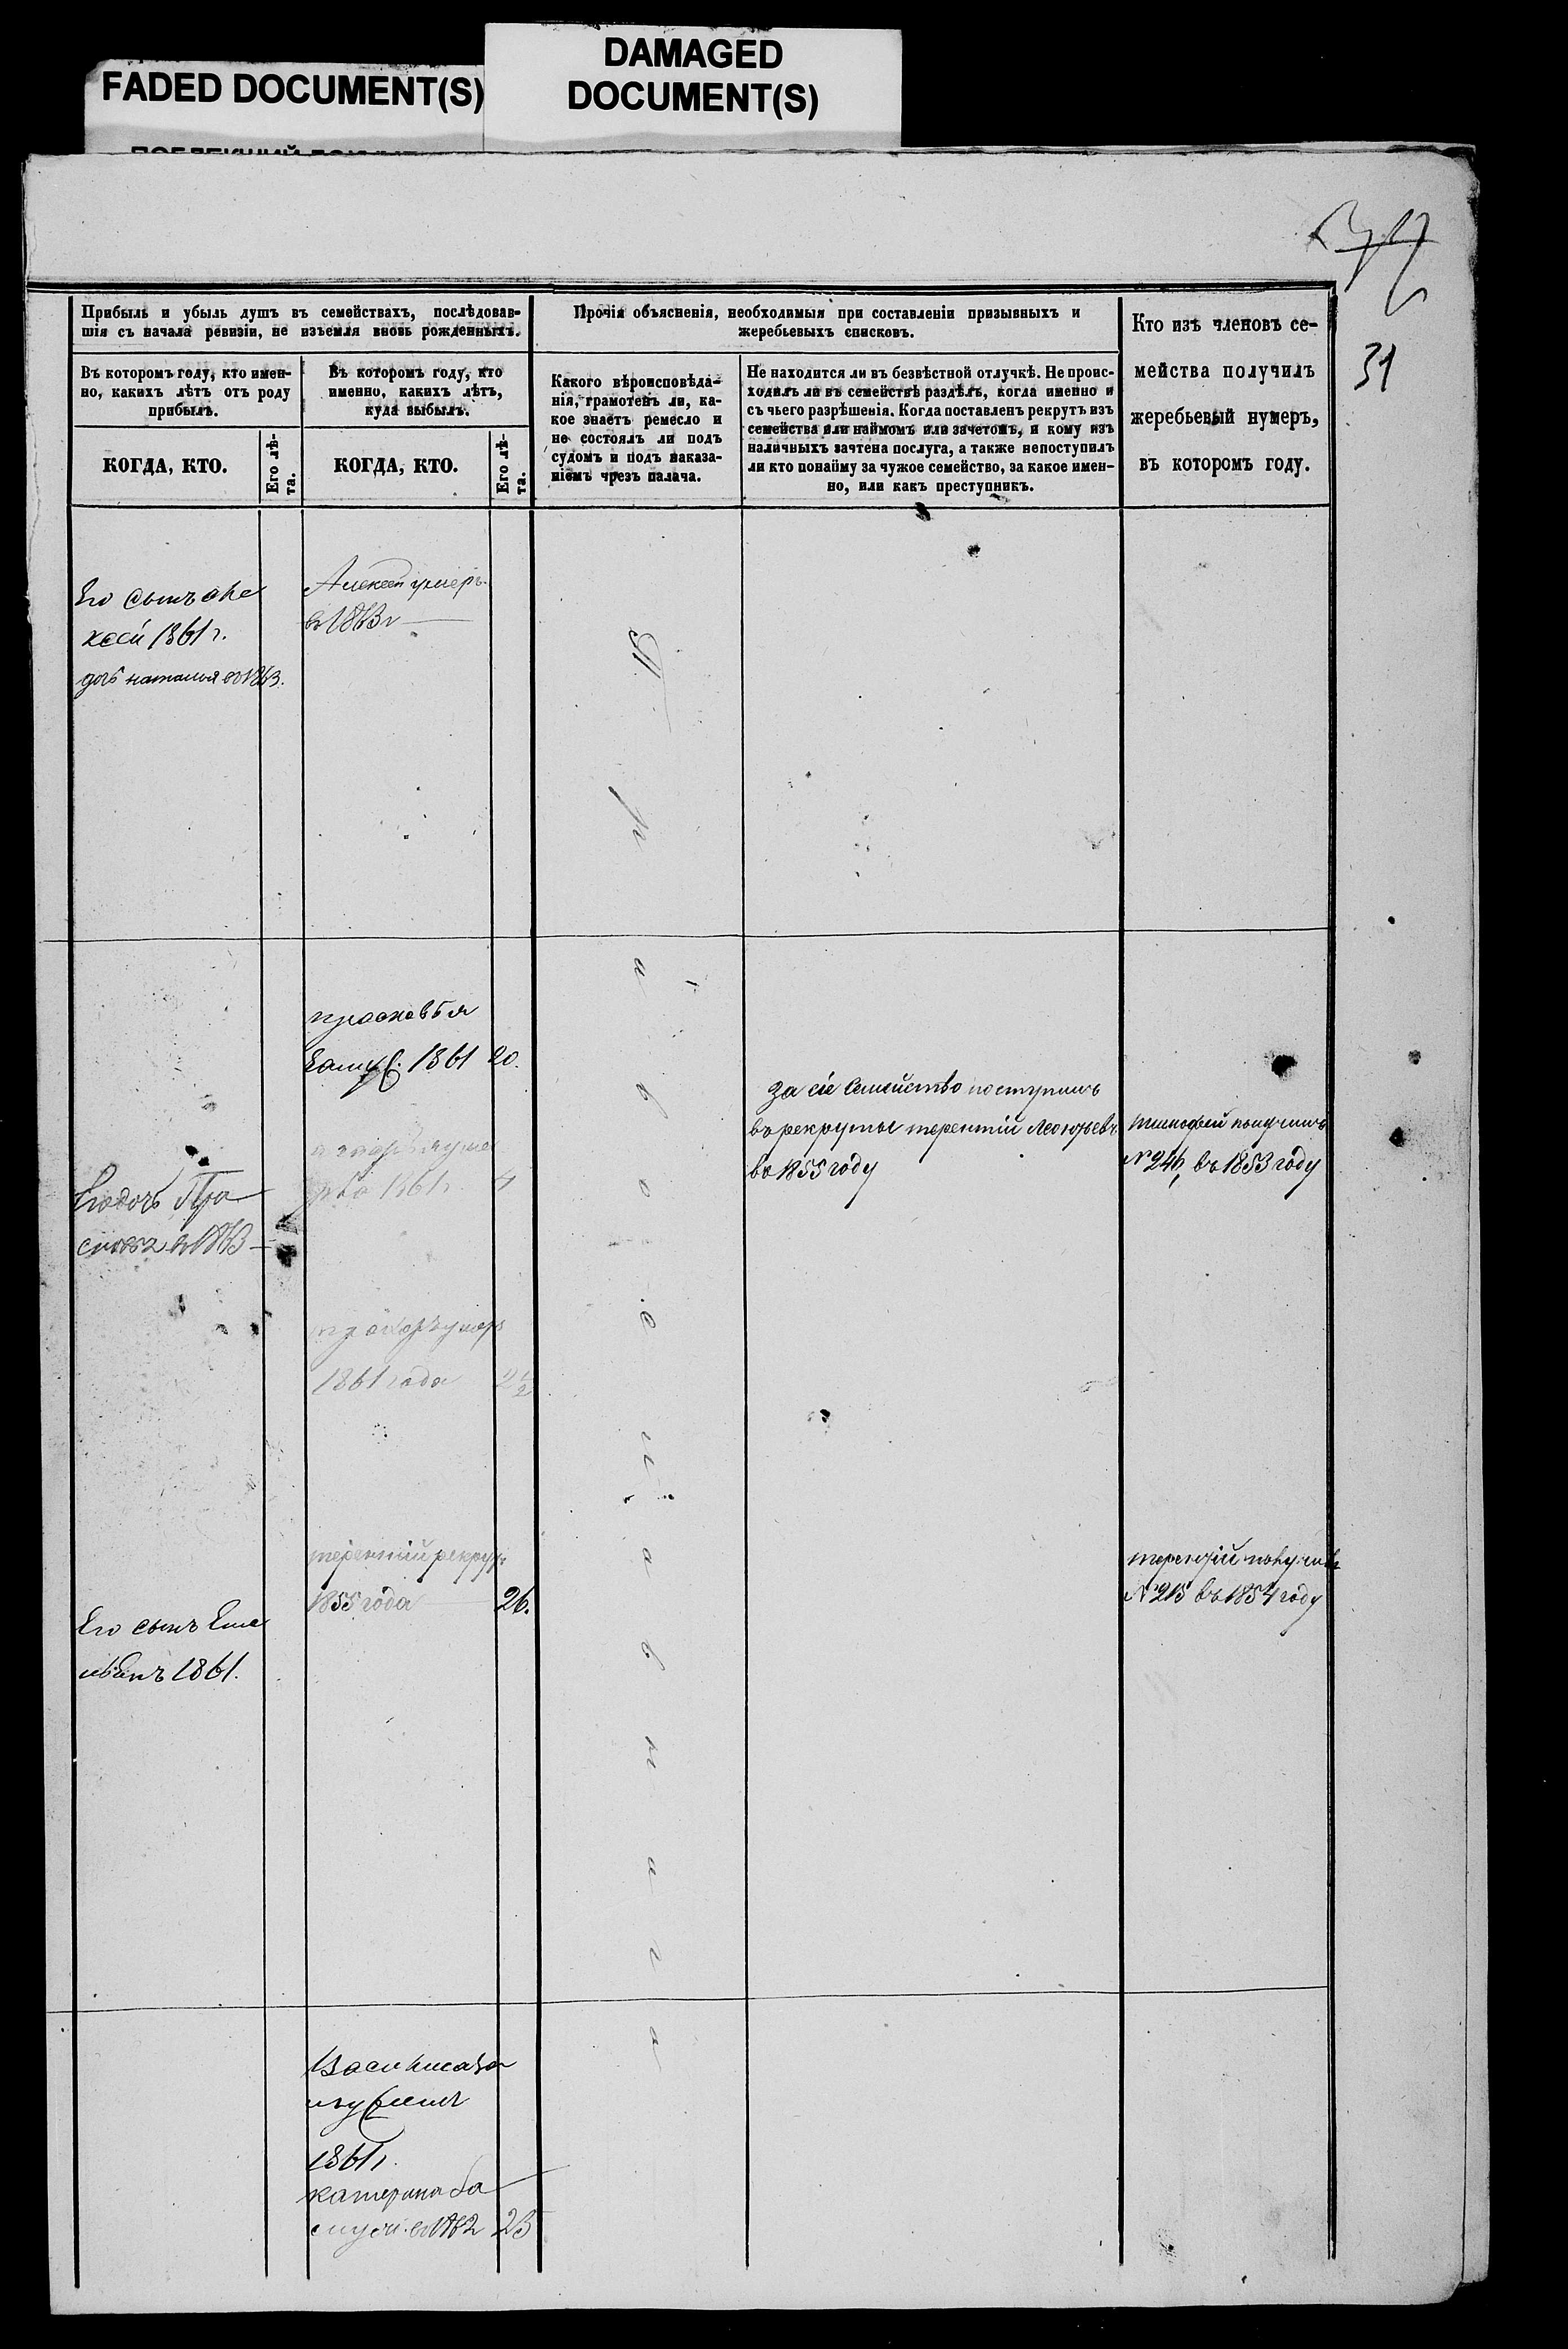 FADED DOCUMENT(S)
DAMAGED
DOCUMENT(S)
31
Прибыль и убыль душъ въ семействахъ, послѣдовав-
шія съ начала ревизіи, не изъемля вновь рожденныхъ.
Въ которомъ году, кто имен-
но, какихъ лѣтъ отъ роду
прибылъ.
КОГДА, КТО.
Его лѣ-
та.
Въ которомъ году, кто
именно, какихъ лѣтъ,
куда выбылъ.
КОГДА, КТО.
Его лѣ-
та.
Прочія объясненія, необходимыя при составленіи призывныхъ и
жеребьевыхъ списковъ.
Какого вѣроисповѣда-
нія, грамотенъ ли, ка-
кое знаетъ ремесло и
не состоялъ ли подъ
судомъ и подъ наказа-
ніемъ чрезъ палача.
Не находится ли въ безвѣстной отлучкѣ. Не проис-
ходилъ ли въ семействѣ раздѣлъ, когда именно и
съ чьего разрѣшенія. Когда поставленъ рекрутъ изъ
семейства или наймомъ или зачетомъ, и кому изъ
наличныхъ зачтена послуга, а также непоступилъ
ли кто понайму за чужое семейство, за какое имен-
но, или какъ преступникъ.
Кто изъ членовъ се-
мейства получилъ
жеребьевый нумеръ,
въ которомъ году.
Его сынъ Але
ксей 1861 г.
дочь наталья въ 1863.
Алексей умеръ
въ 1863 г
Православнаго
прасковья
замуж. 1861 20.
1861 г. 4
Его дочь Пра
сковья въ 1863
умеръ
1861 года 2½
За сіе семейство поступилъ
въ рекруты терентій Леонтьевъ
въ 1855 году
тимофей получилъ
№ 246, въ 1853 году
терентій рекрут
1855 года 26.
терентій получилъ
№ 215 въ 1854 году
Его сынъ Еме
льянъ 1861.
Василиса за
мужемъ
1861 г.
катерина за
мужем. въ 1862 23